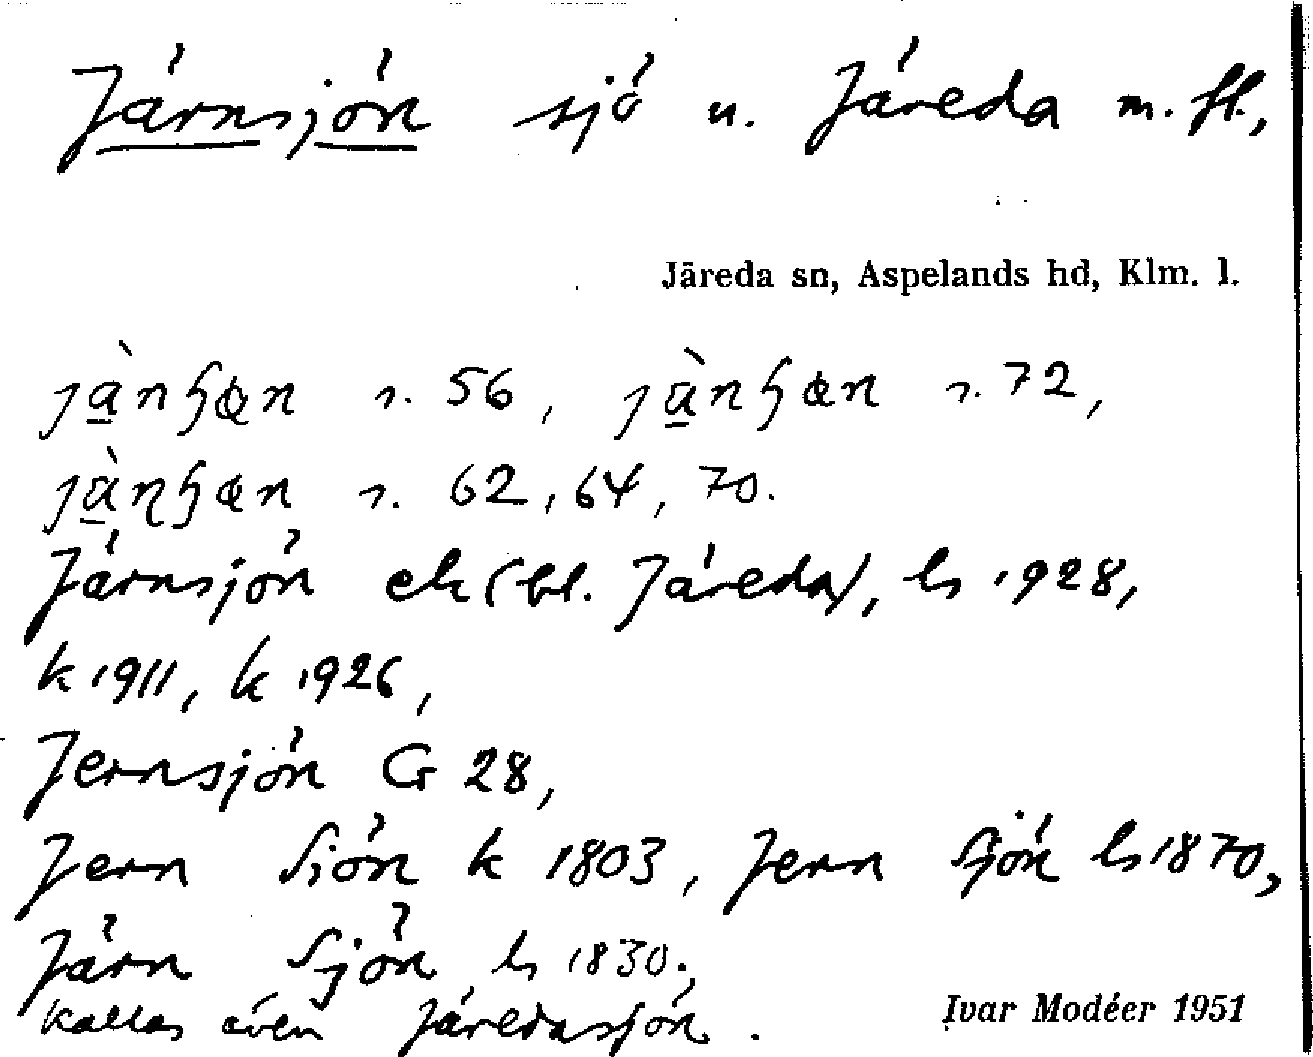 Järnsjön sjö u. Järeda m. fl.,
Järeda sn, Aspelands hd, Klm. l.
s. 56, s. 72,
s. 62, 64, 70.
Järnsjön ek (bl. Järeda), ls 1928,
k 1911, k 1926,
Jernsjön G 28,
Jern Siön k 1803, Jern Sjön ls 1870,
Järn Sjön ls 1830.,
kallas även Järedasjön.
Ivar Modéer 1951